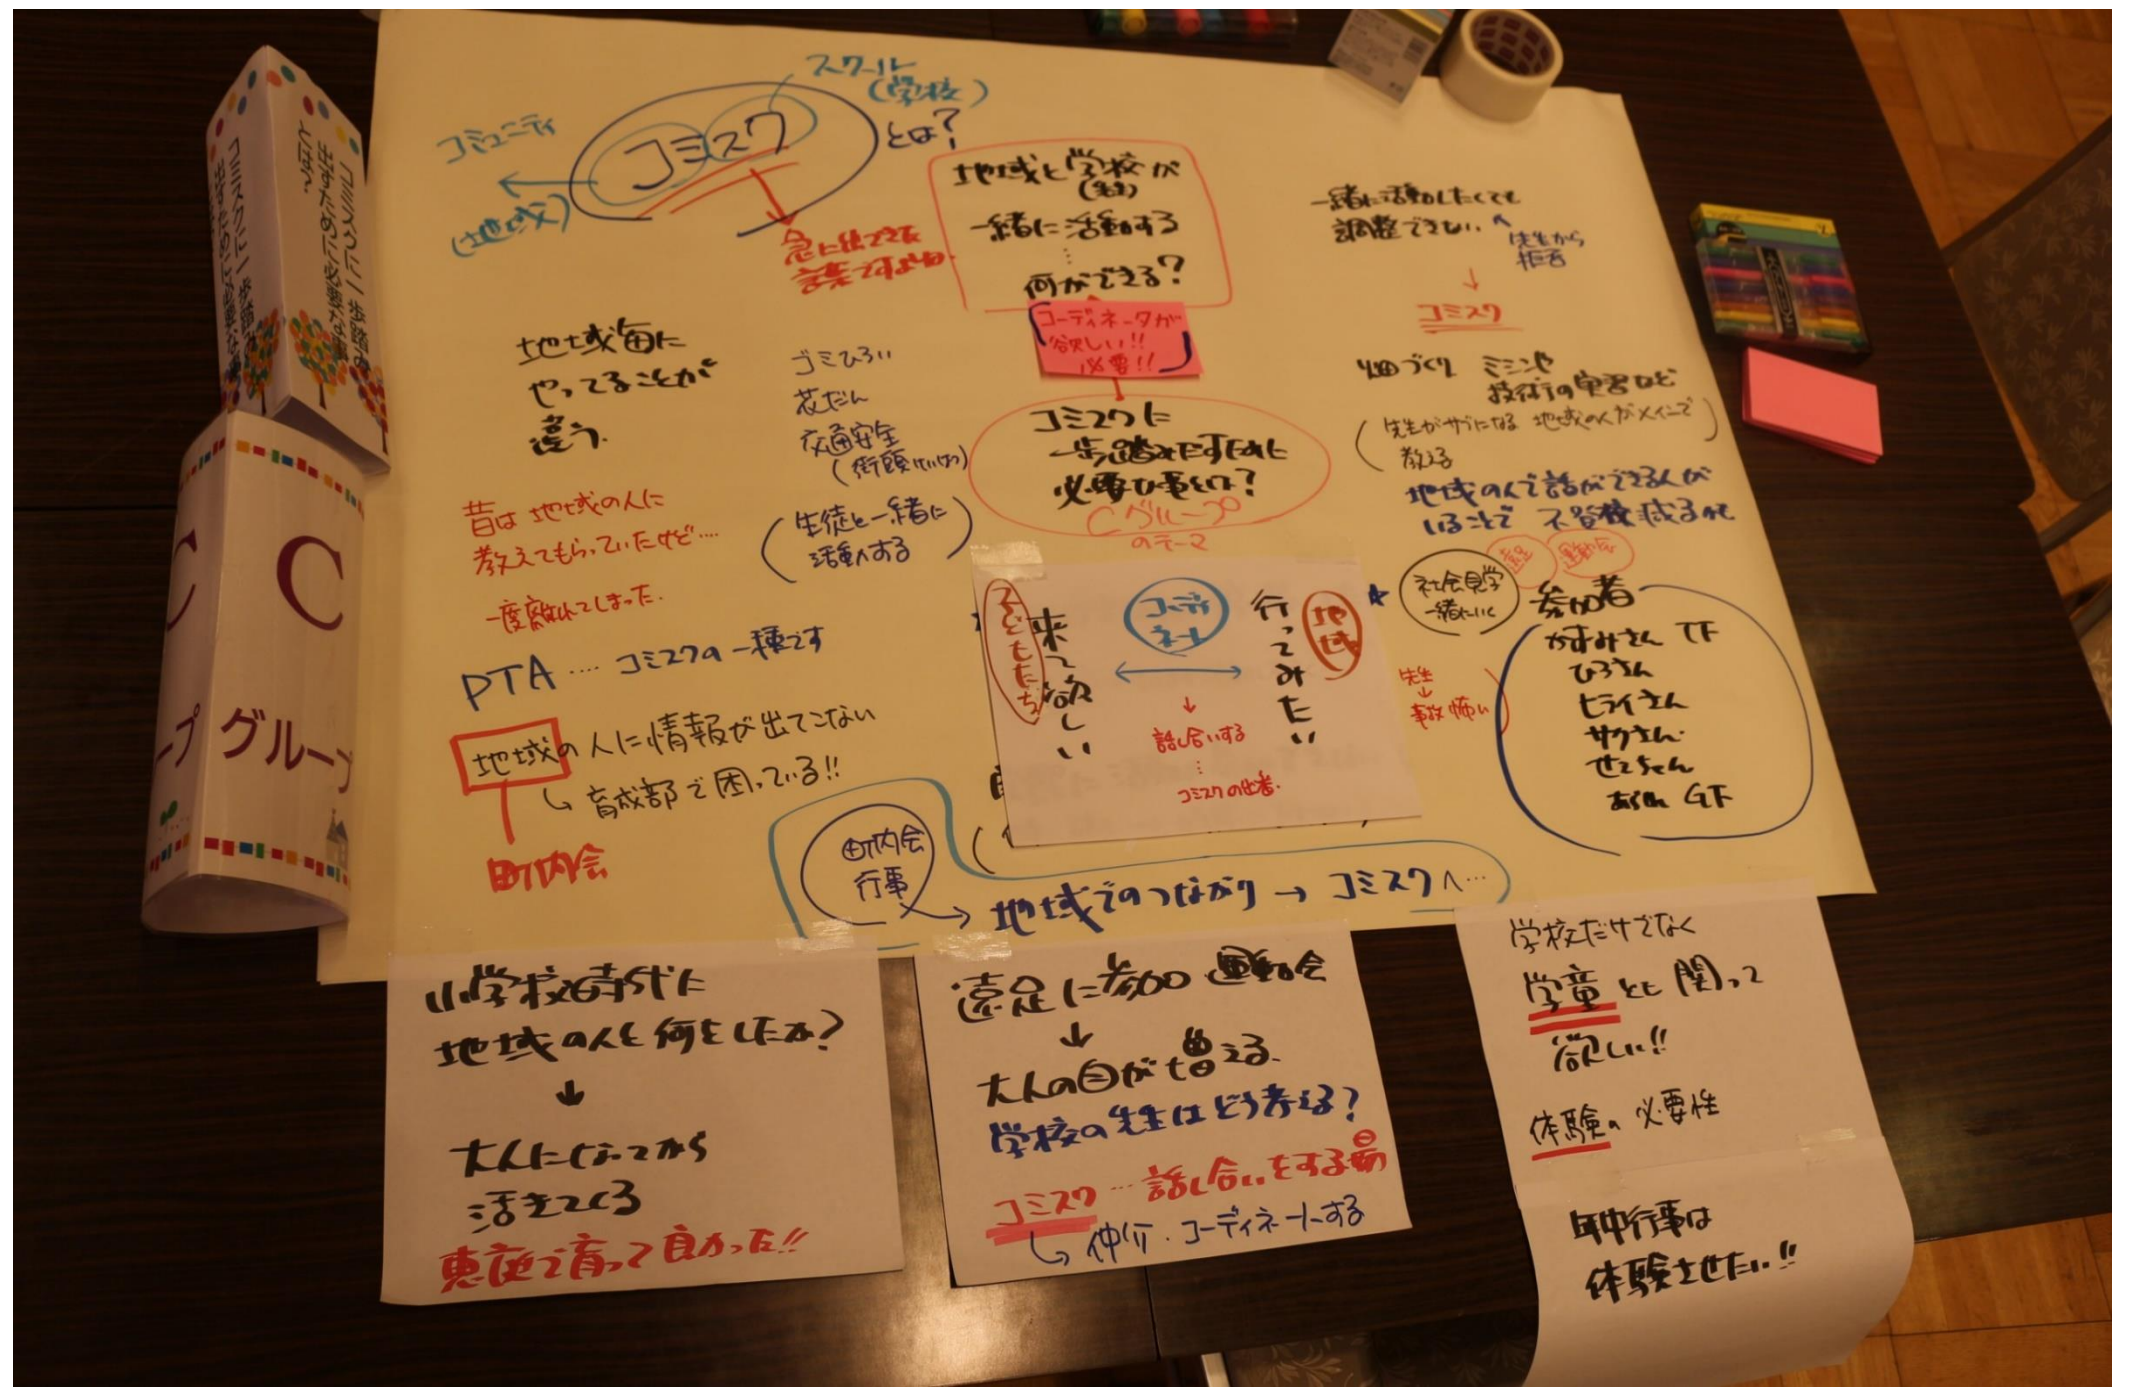 「コミスクに一歩踏み
出すために必要な事
とは?」
コミスクに一歩踏み
出すために必要な事
C
グループ
コミュニティ
(地域)
スクール
(学校)
コミスク
とは?
急に出てきた
言葉ですよね。
地域と学校が
一緒に活動する
何ができる?
コーディネータが
欲しい!!
必要!!
コミスクに
一歩踏みだすために
必要な事とは?
Cグループ
のテーマ
一緒に活動したくても
調整できない
先生から
拒否
↓
コミスク
畑づくり ミシンや
技術の実習など
(先生がサブになる 地域の人がメインで
教える)
地域の人で話ができる人が
いることで 不登校減るかも
地域毎に
やってることが
違う。
ゴミひろい
花だん
交通安全
(街頭けいはつ)
(生徒と一緒に
活動する)
昔は地域の人に
教えてもらっていたけど....
一度離れてしまった。
PTA....コミスクの一種です
地域の人に情報が出てこない
育成部で困っている!!
町内会
子どもたち
来て欲しい
コーディ
ネート
行ってみたい
地域
↓
話し合いする
コミスクの出番。
★
社会見学
一緒にいく
遠足
運動会
先生
↓
事故怖い
参加者
かすみさん TF
ひろさん
ヒライさん
サクさん
せこちゃん
GF
町内会
行事
地域でのつながり → コミスクへ…
小学校時代に
地域の人と何をしたか?
↓
大人になってから
活きてくる
恵庭で育って良かった!!
遠足に参加 運動会
↓
大人の目が増える。
学校の先生はどう考える?
コミスク…話し合いをする場
仲介・コーディネートする
学校だけでなく
学童とも関って
欲しい!!
体験の必要性
年中行事は
体験させたい!!